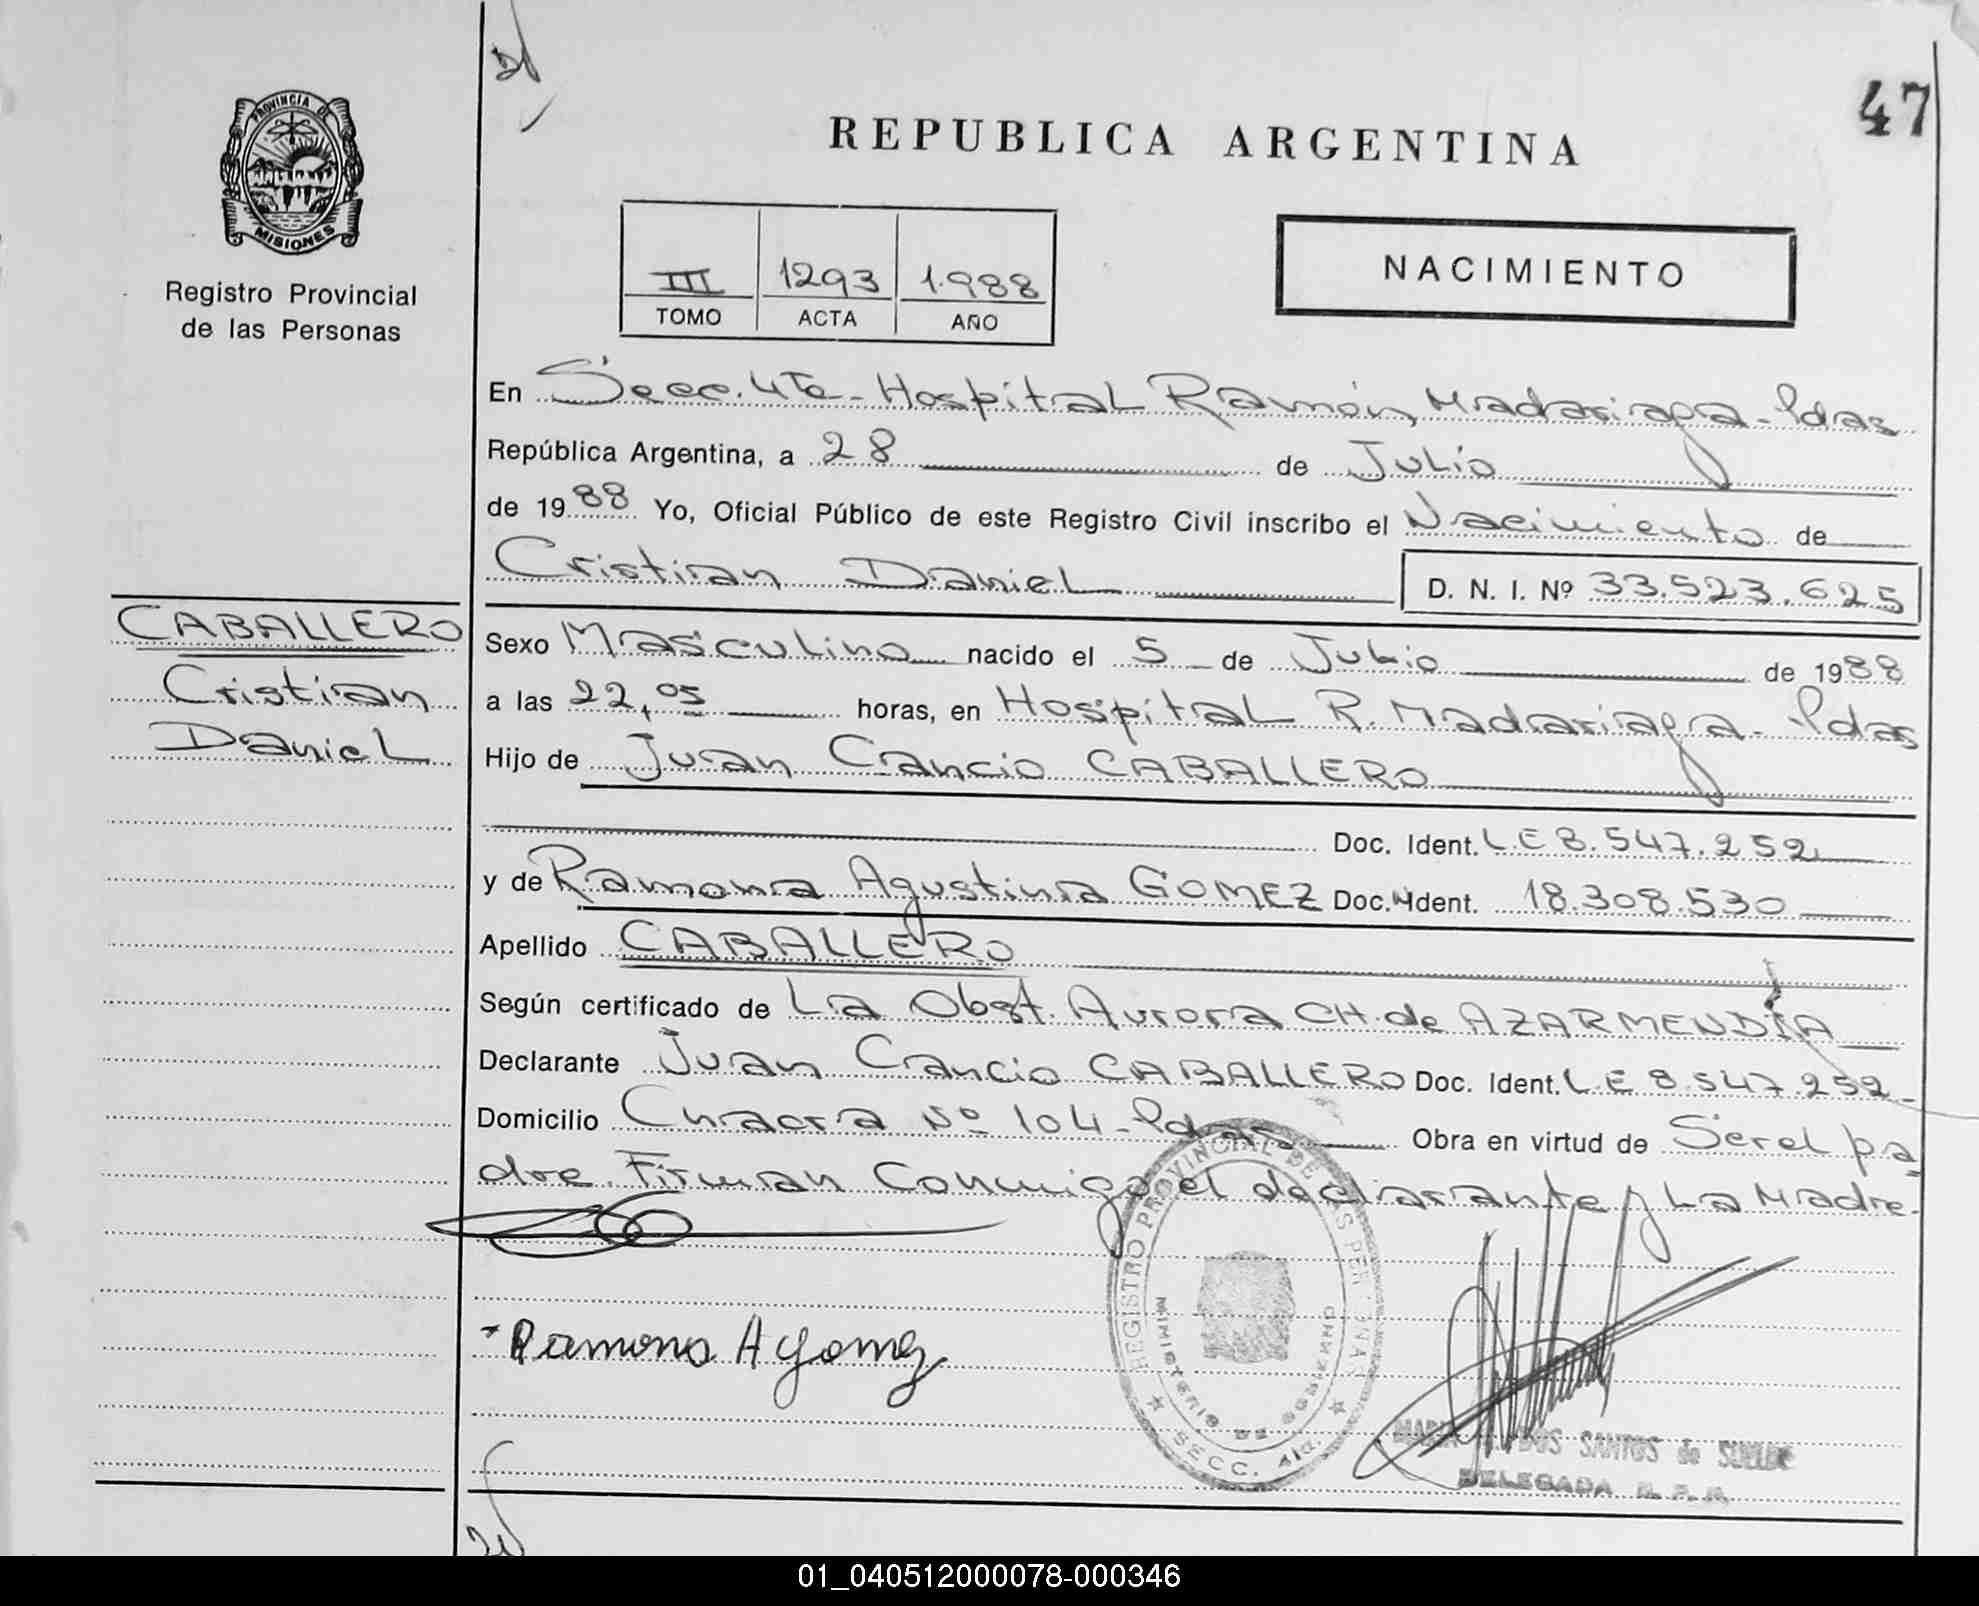 47
PROVINCIA DE
MISIONES
Registro Provincial
de las Personas
REPUBLICA ARGENTINA
III 1293 1.988
TOMO ACTA AÑO
NACIMIENTO
En Secc. 4ta - Hospital Ramón Madariaga - Pdas
República Argentina, a 28 de Julio
de 1988 Yo, Oficial Público de este Registro Civil inscribo el Nacimiento de
Cristian Daniel D. N. I. Nº 33.523.625
CABALLERO
Cristian
Daniel
Sexo Masculino nacido el 5 de Julio de 1988
a las 22,05 horas, en Hospital R. Madariaga - Pdas
Hijo de Juan Cancio CABALLERO
Doc. Ident. L.E 8.547.252
y de Ramona Agustina GOMEZ Doc. Ident. 18.308.530
Apellido CABALLERO
Según certificado de La Obst. Aurora CH. de AZARMENDIA
Declarante Juan Cancio CABALLERO Doc. Ident. L.E 8.547.252
Domicilio Chacra Nº 104 - Pdas Obra en virtud de Ser el pa
dre. Firman Conmigo el declarante y La Madre.
Ramona A Gomez
REGISTRO PROVINCIAL DE LAS PERSONAS
MINISTERIO DE GOBIERNO
SECC. 4ta.
DOS SANTOS de
DELEGADA R. P. P.
01_040512000078-000346